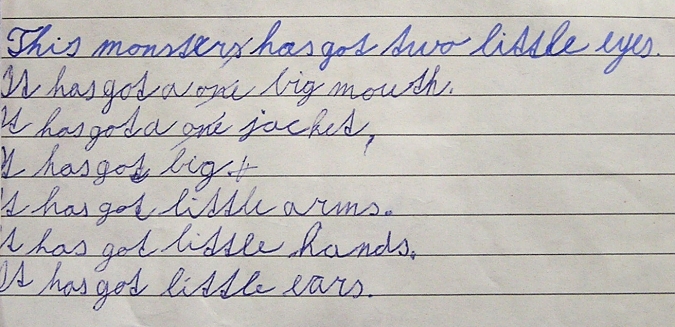 This monster has got two little eyes.
It has got a one big mouth.
It has got a one jacket,
It has got big
It has got little arms.
It has got little hands.
It has got little ears.